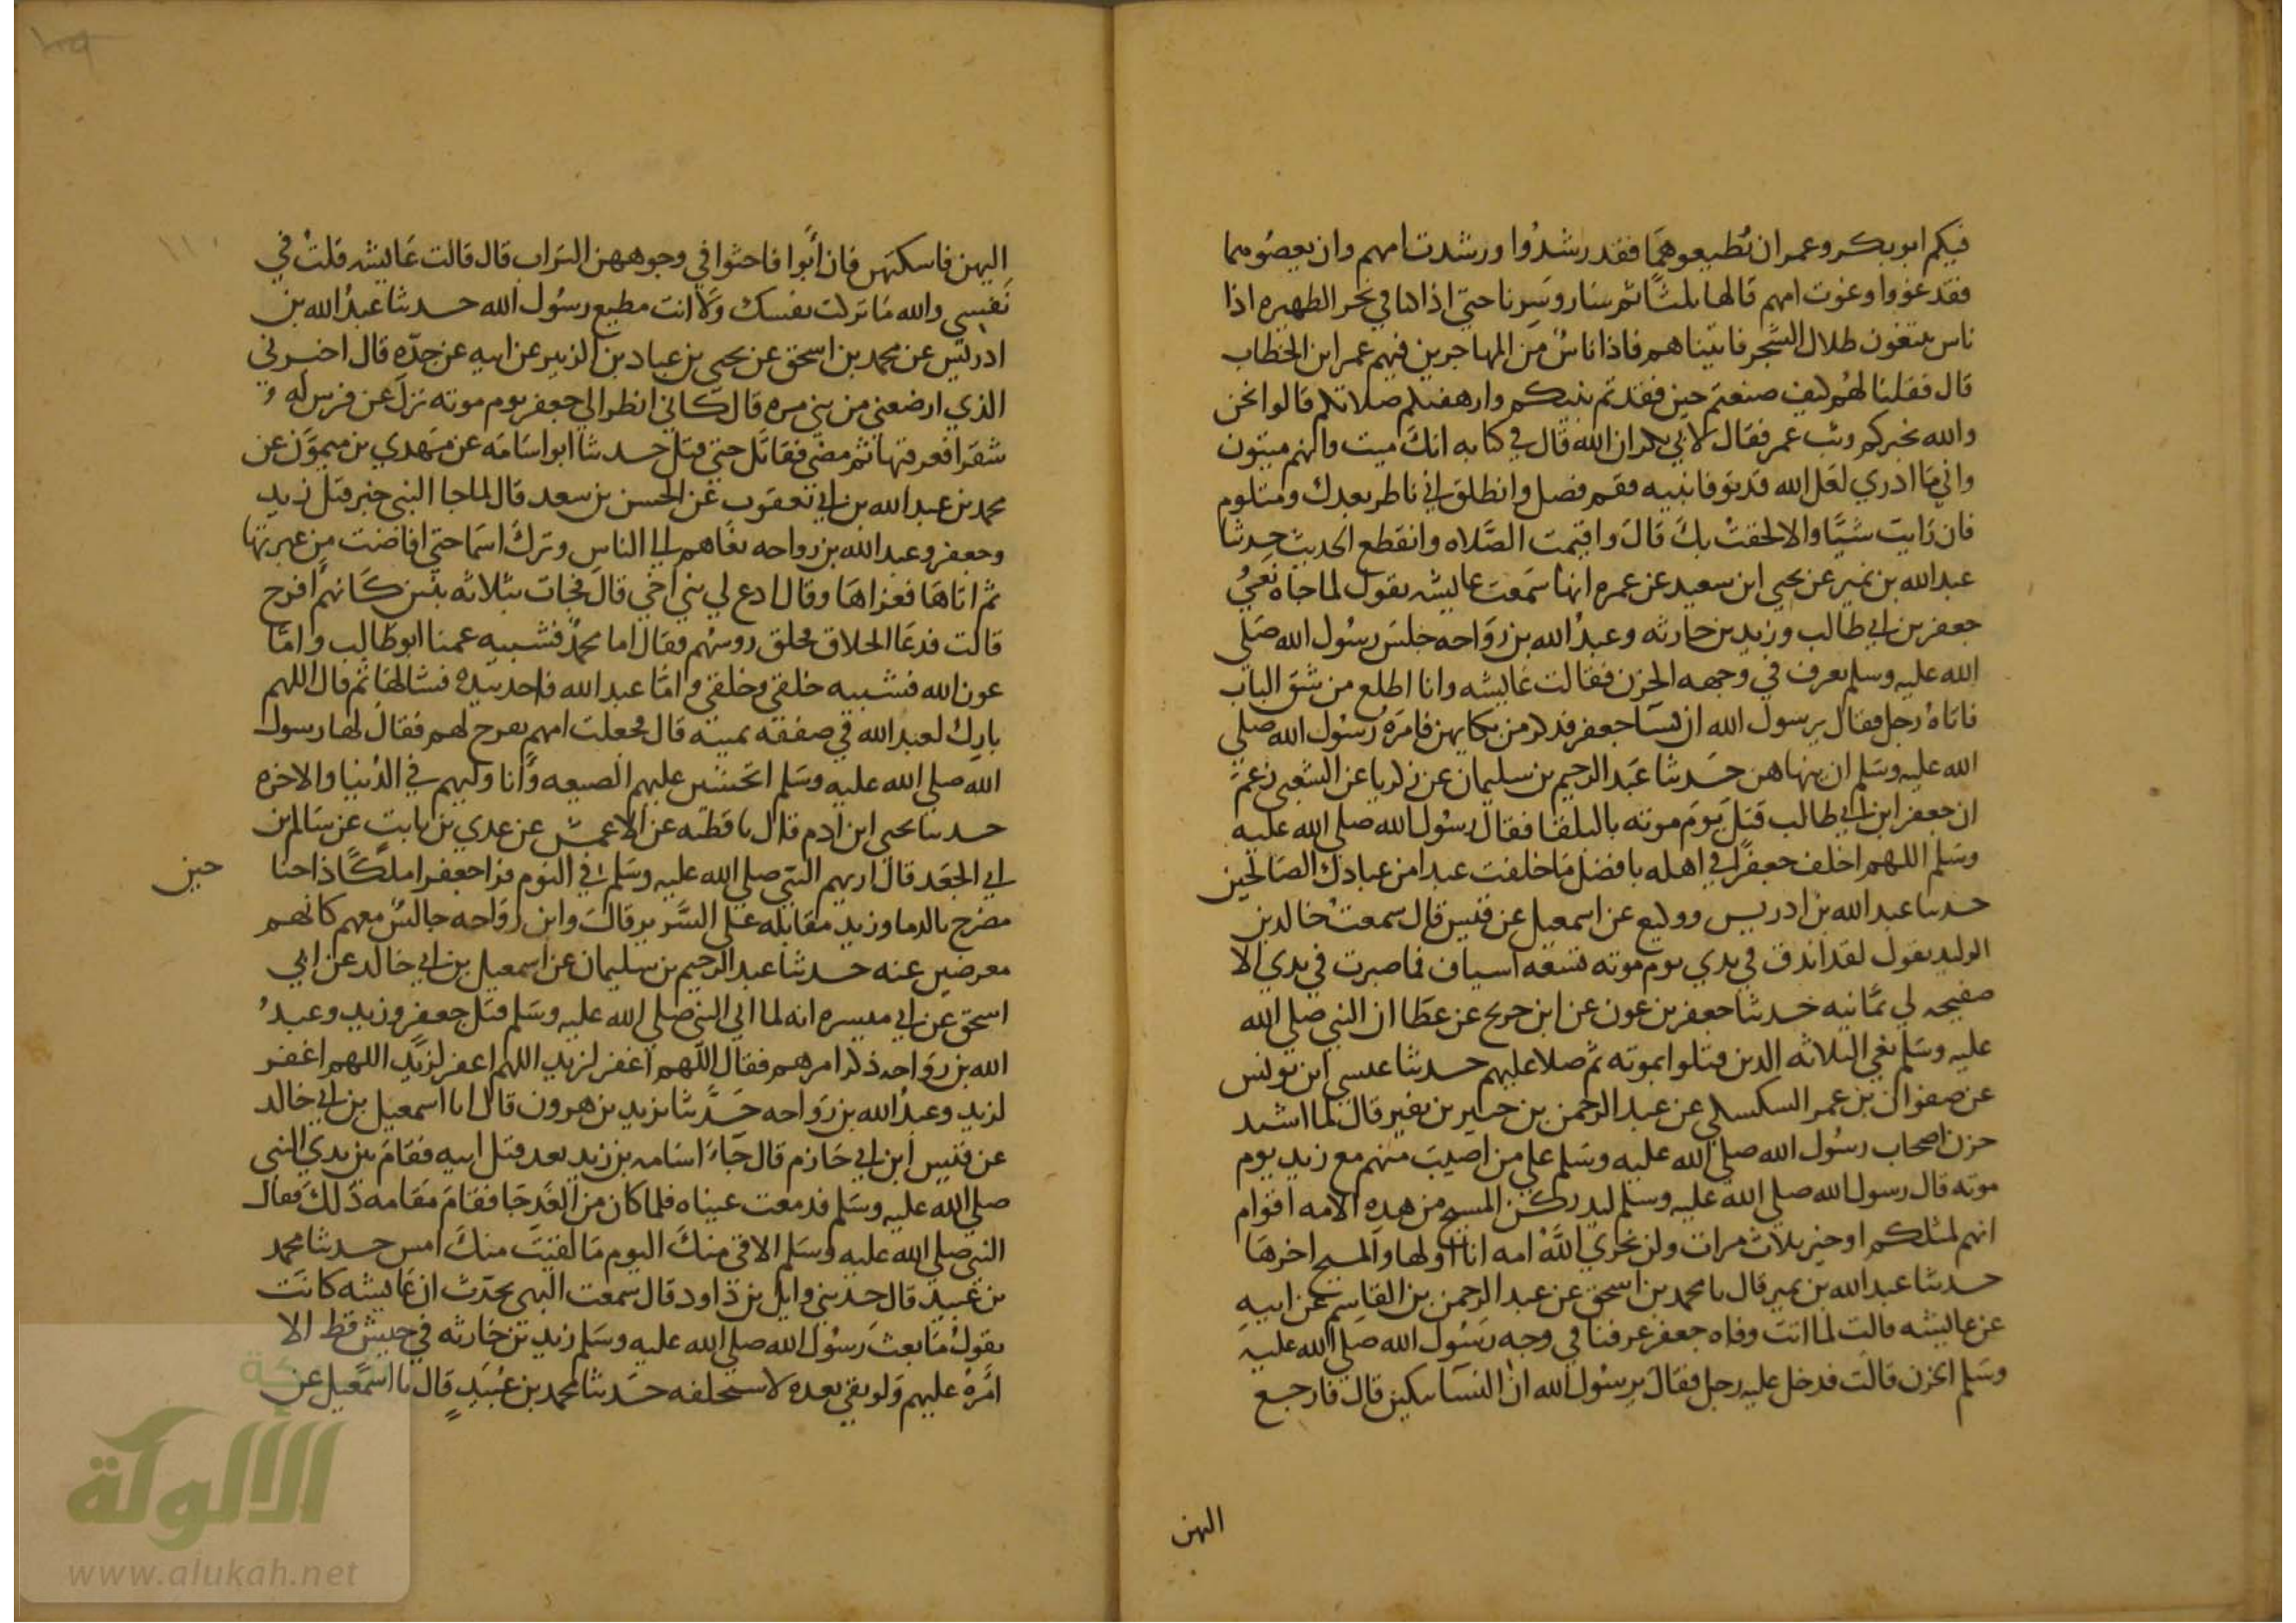 فيكم ابو بكر وعمر ان تطيعوهما فقد رشدوا ورشدت امهم وان يعصوهما
فقد غووا وغوت امهم قالها ثلثا ثم سار وسرنا حتى اذا كنا في نحر الظهيره اذا
ناس يتبعون ظلال الشجر فاتيناهم فاذا ناس من المهاجرين فيهم عمر ابن الخطاب
قال فقلنا لهم كيف صنعتم حين فقدتم نبيكم وارهقتكم صلاتكم قالوا نحن
والله نخبركم وثب عمر فقال لابي بكر ان الله قال في كتابه انك ميت وانهم ميتون
واني ما ادري لعل الله قد توفا نبيه فقم فصل وانطلق اني ناظر بعدك ومتلوم
فان رايت شيا والا لحقت بك قال واقيمت الصلاه وانقطع الحديث حدثنا
عبد الله بن نمير عن يحيى ابن سعيد عن عمره انها سمعت عايشه تقول لما جاه نعي
جعفر بن ابي طالب وزيد بن حارثه وعبد الله بن رواحه جلس رسول الله صلى
الله عليه وسلم يعرف في وجهه الحزن فقالت عايشه وانا اطلع من شق الباب
فاتاه رجل فقال يرسول الله ان نسا جعفر فذكر من بكايهن فامره رسول الله صلى
الله عليه وسلم ان ينهاهن حدثنا عبد الرحيم بن سليمان عن زكريا عن الشعبي زعم
ان جعفر ابن ابي طالب قتل يوم موته بالبلقا فقال رسول الله صلى الله عليه
وسلم اللهم اخلف جعفرا في اهله بافضل ما خلفت عبدا من عبادك الصالحين
حدثنا عبد الله بن ادريس ووكيع عن اسمعيل عن قيس قال سمعت خالد بن
الوليد يقول لقد اندق في يدي يوم موته تسعه اسياف فما صبرت في يدي الا
صفيحه لي يمانيه حدثنا جعفر بن عون عن ابن جريج عن عطا ان النبي صلى الله
عليه وسلم نعي الثلاثه الذين قتلوا بموته ثم صلا عليهم حدثنا عيسى ابن يونس
عن صفوان بن عمر السكسكي عن عبد الرحمن بن جبير بن نفير قال لما اشتد
حزن اصحاب رسول الله صلى الله عليه وسلم على من اصيب منهم مع زيد يوم
موته قال رسول الله صلى الله عليه وسلم ليدركن المسيح من هذه الامه اقوام
انهم لمثلكم او خير ثلاث مرات ولن يخزي الله امه انا اولها والمسيح اخرها
حدثنا عبد الله بن نمير قال نا محمد بن اسحق عن عبد الرحمن بن القاسم عن ابيه
عن عايشه قالت لما اتت وفاه جعفر عرفنا في وجه رسول الله صلى الله عليه
وسلم الحزن قالت فدخل عليه رجل فقال يرسول الله ان النسا يبكين قال فارجع
اليهن
اليهن فاسكتهن فان ابوا فاحثوا في وجوههن التراب قال قالت عايشه قلت في
نفسي والله ما تركت نفسك ولا انت مطيع رسول الله حدثنا عبد الله بن
ادريس عن محمد بن اسحق عن يحيى بن عباد بن الزبير عن ابيه عن جده قال اخبرني
الذي ارضعني من بني مره قال كاني انظر الى جعفر يوم موته نزل عن فرس له
شقرا فعرقبها ثم مضى فقاتل حتى قتل حدثنا ابو اسامه عن مهدي بن ميمون عن
محمد بن عبد الله بن ابي يعقوب عن الحسن بن سعد قال لما جا النبي خبر قتل زيد
وجعفر وعبد الله بن رواحه نعاهم الى الناس وترك اسما حتى افاضت من عبرتها
ثم اتاها فعزاها وقال ادع لي بني اخي قال فجات بثلاثه بنين كانهم افرخ
قالت فدعا الحلاق فحلق روسهم فقال اما محمد فشبيه عمنا ابو طالب واما
عون الله فشبيه خلقي وخلقي واما عبد الله فاخذ بيده فشالها ثم قال اللهم
بارك لعبد الله في صفقه يمينه قال فجعلت امهم تفرح لهم فقال لها رسول
الله صلى الله عليه وسلم اتخشين عليهم الضيعه وانا وليهم في الدنيا والاخره
حدثنا يحيى ابن ادم قال نا قطبه عن الاعمش عن عدي بن ثابت عن سالم بن
ابي الجعد قال اريهم النبي صلى الله عليه وسلم في النوم فرا جعفرا ملكا ذا جناحين
مضرج بالدما وزيد مقابله على السرير قال وابن رواحه جالس معهم كانهم
معرضين عنه حدثنا عبد الرحيم بن سليمان عن اسمعيل بن ابي خالد عن ابي
اسحق عن ابي ميسره انه لما اتى النبي صلى الله عليه وسلم قتل جعفر وزيد وعبد
الله بن رواحه ذكر امرهم فقال اللهم اغفر لزيد اللهم اغفر لزيد اللهم اغفر
لزيد وعبد الله بن رواحه حدثنا يزيد بن هرون قال انا اسمعيل بن ابي خالد
عن قيس ابن ابي حازم قال جاء اسامه بن زيد بعد قتل ابيه فقام بين يدي النبي
صلى الله عليه وسلم فدمعت عيناه فلما كان من الغد جا فقام مقامه ذلك فقال
النبي صلى الله عليه وسلم الاقي منك اليوم ما لقيت منك امس حدثنا محمد
بن عبيد قال حدثني وايل بن داود قال سمعت البهي يحدث ان عايشه كانت
تقول ما بعث رسول الله صلى الله عليه وسلم زيد بن حارثه في جيش قط الا
امره عليهم ولو بقي بعده لاستخلفه حدثنا محمد بن عبيد قال نا اسمعيل عن
شبكة
الألوكة
www.alukah.net